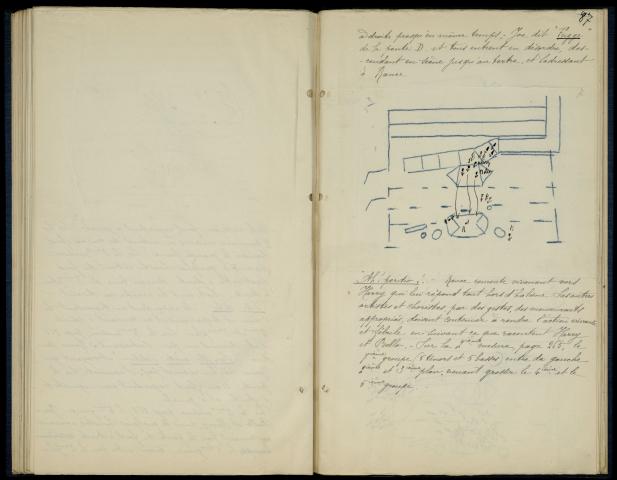 87
à droite presque en même temps. - Joe dit "
de la route D. et tous entrent en désordre, des-
-cendant en scène jusqu'au tertre, et s'adressant
à Rance
"Ah! perdio! - Rance remonte vivement vers
Harry qui lui répond tout hors d'haleine. Les autres
artistes et choristes par des gestes, des mouvements
appropriés, doivent continuer à rendre l'action vivante
et fébrile en suivant ce que racontent Harry
et Bello. - Sur la mesure, page 265, le
groupe (8 ténors et 5 basses) entre de gauche
et 3ème plan, venant grossir le 4ème et le
5ème groupe.